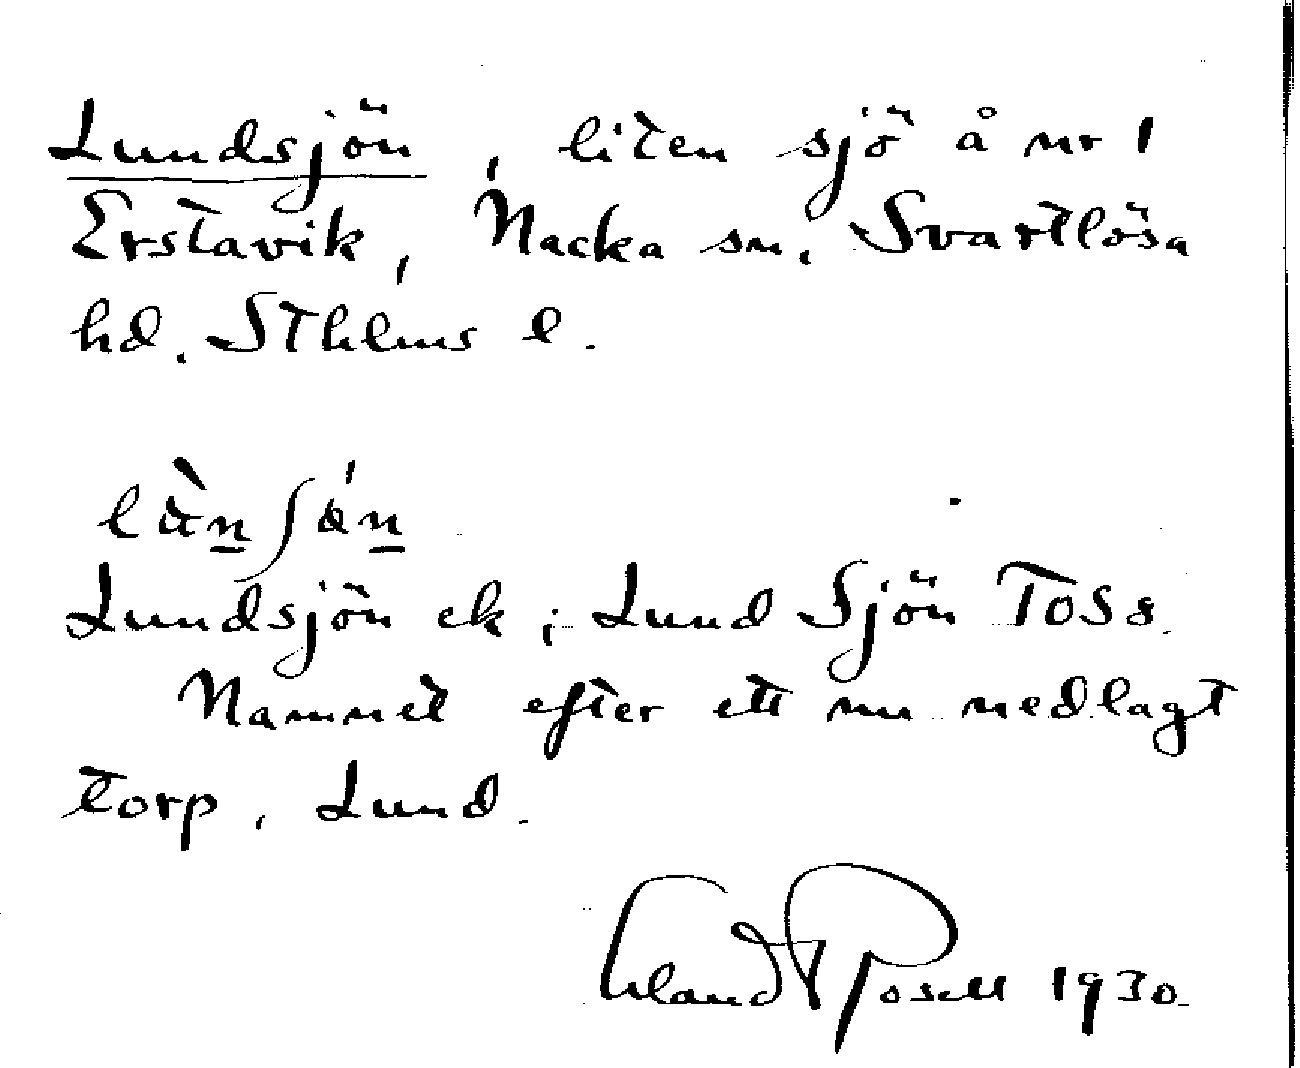 Lundsjön, liten sjö å nr 1
Erstavik, Nacka sn. Svartlösa
hd. Sthlms l.
Lundsjön ek; Lund Sjön TOSs.
Namnet efter ett nu nedlagt
torp, Lund.
Erland Rosell 1930.